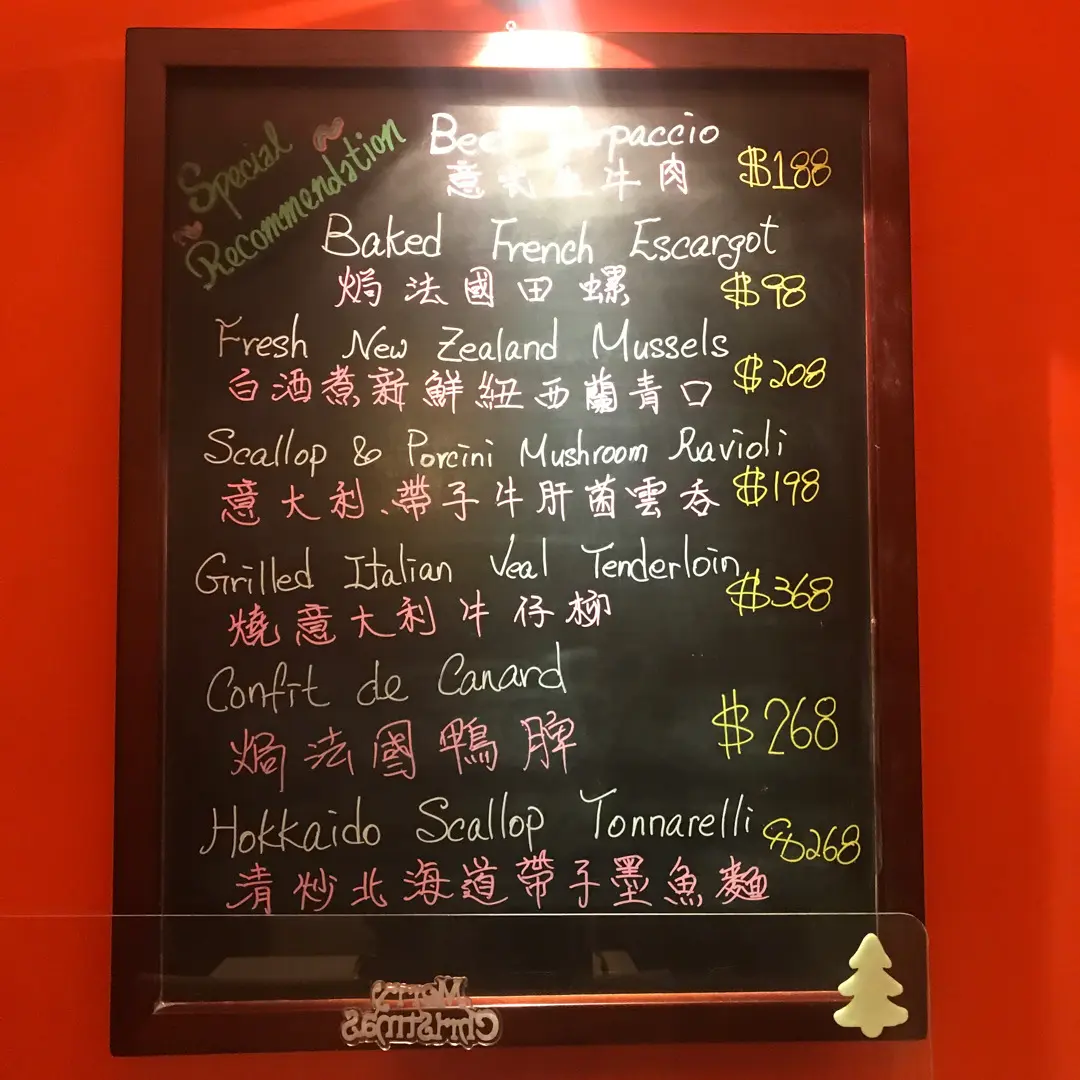 Special
Recommendation
Beef Carpaccio
意式生牛肉 $188
Baked French Escargot
焗法國田螺 $98
Fresh New Zealand Mussels
白酒煮新鮮紐西蘭青口 $208
Scallop & Porcini Mushroom Ravioli
意大利帶子牛肝菌雲呑 $198
Grilled Italian Veal Tenderloin
燒意大利牛仔柳 $368
Confit de Canard
焗法國鴨脾 $268
Hokkaido Scallop Tonnarelli $268
清炒北海道帶子墨魚麵
Merry
Christmas